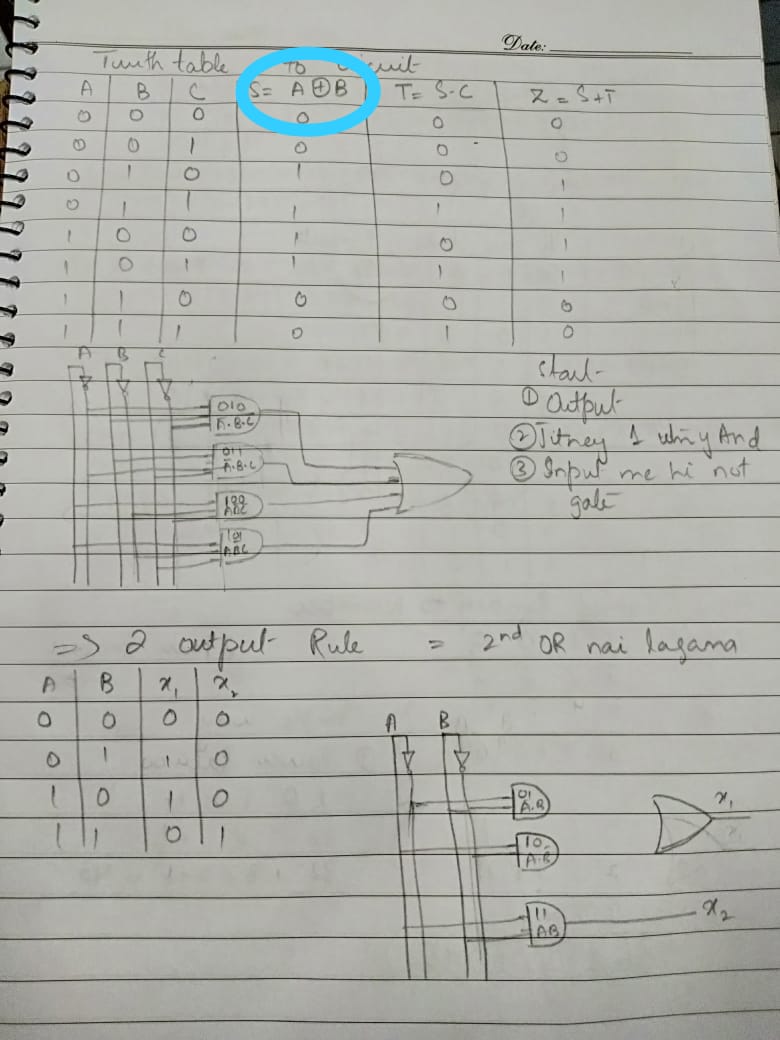 Date:
Truth table to Circuit
A B C S= A⊕B T= S.C Z = S+T
0 0 0 0 0 0
0 0 1 0 0 0
0 1 0 1 0 1
0 1 1 1 1 1
1 0 0 1 0 1
1 0 1 1 1 1
1 1 0 0 0 0
1 1 1 0 1 0
A B C
010
A̅.B.C̅
011
A̅.B.C
100
ABC
101
ABC
Start-
① Output
② Jitney 1 utny And
③ Input me hi not
gate
=> 2 output Rule = 2nd OR nai lagana
A B x₁ x₂
0 0 0 0
0 1 1 0
1 0 1 0
1 1 0 1
A B
01
A.B
10
A.B
11
AB
x₁
x₂